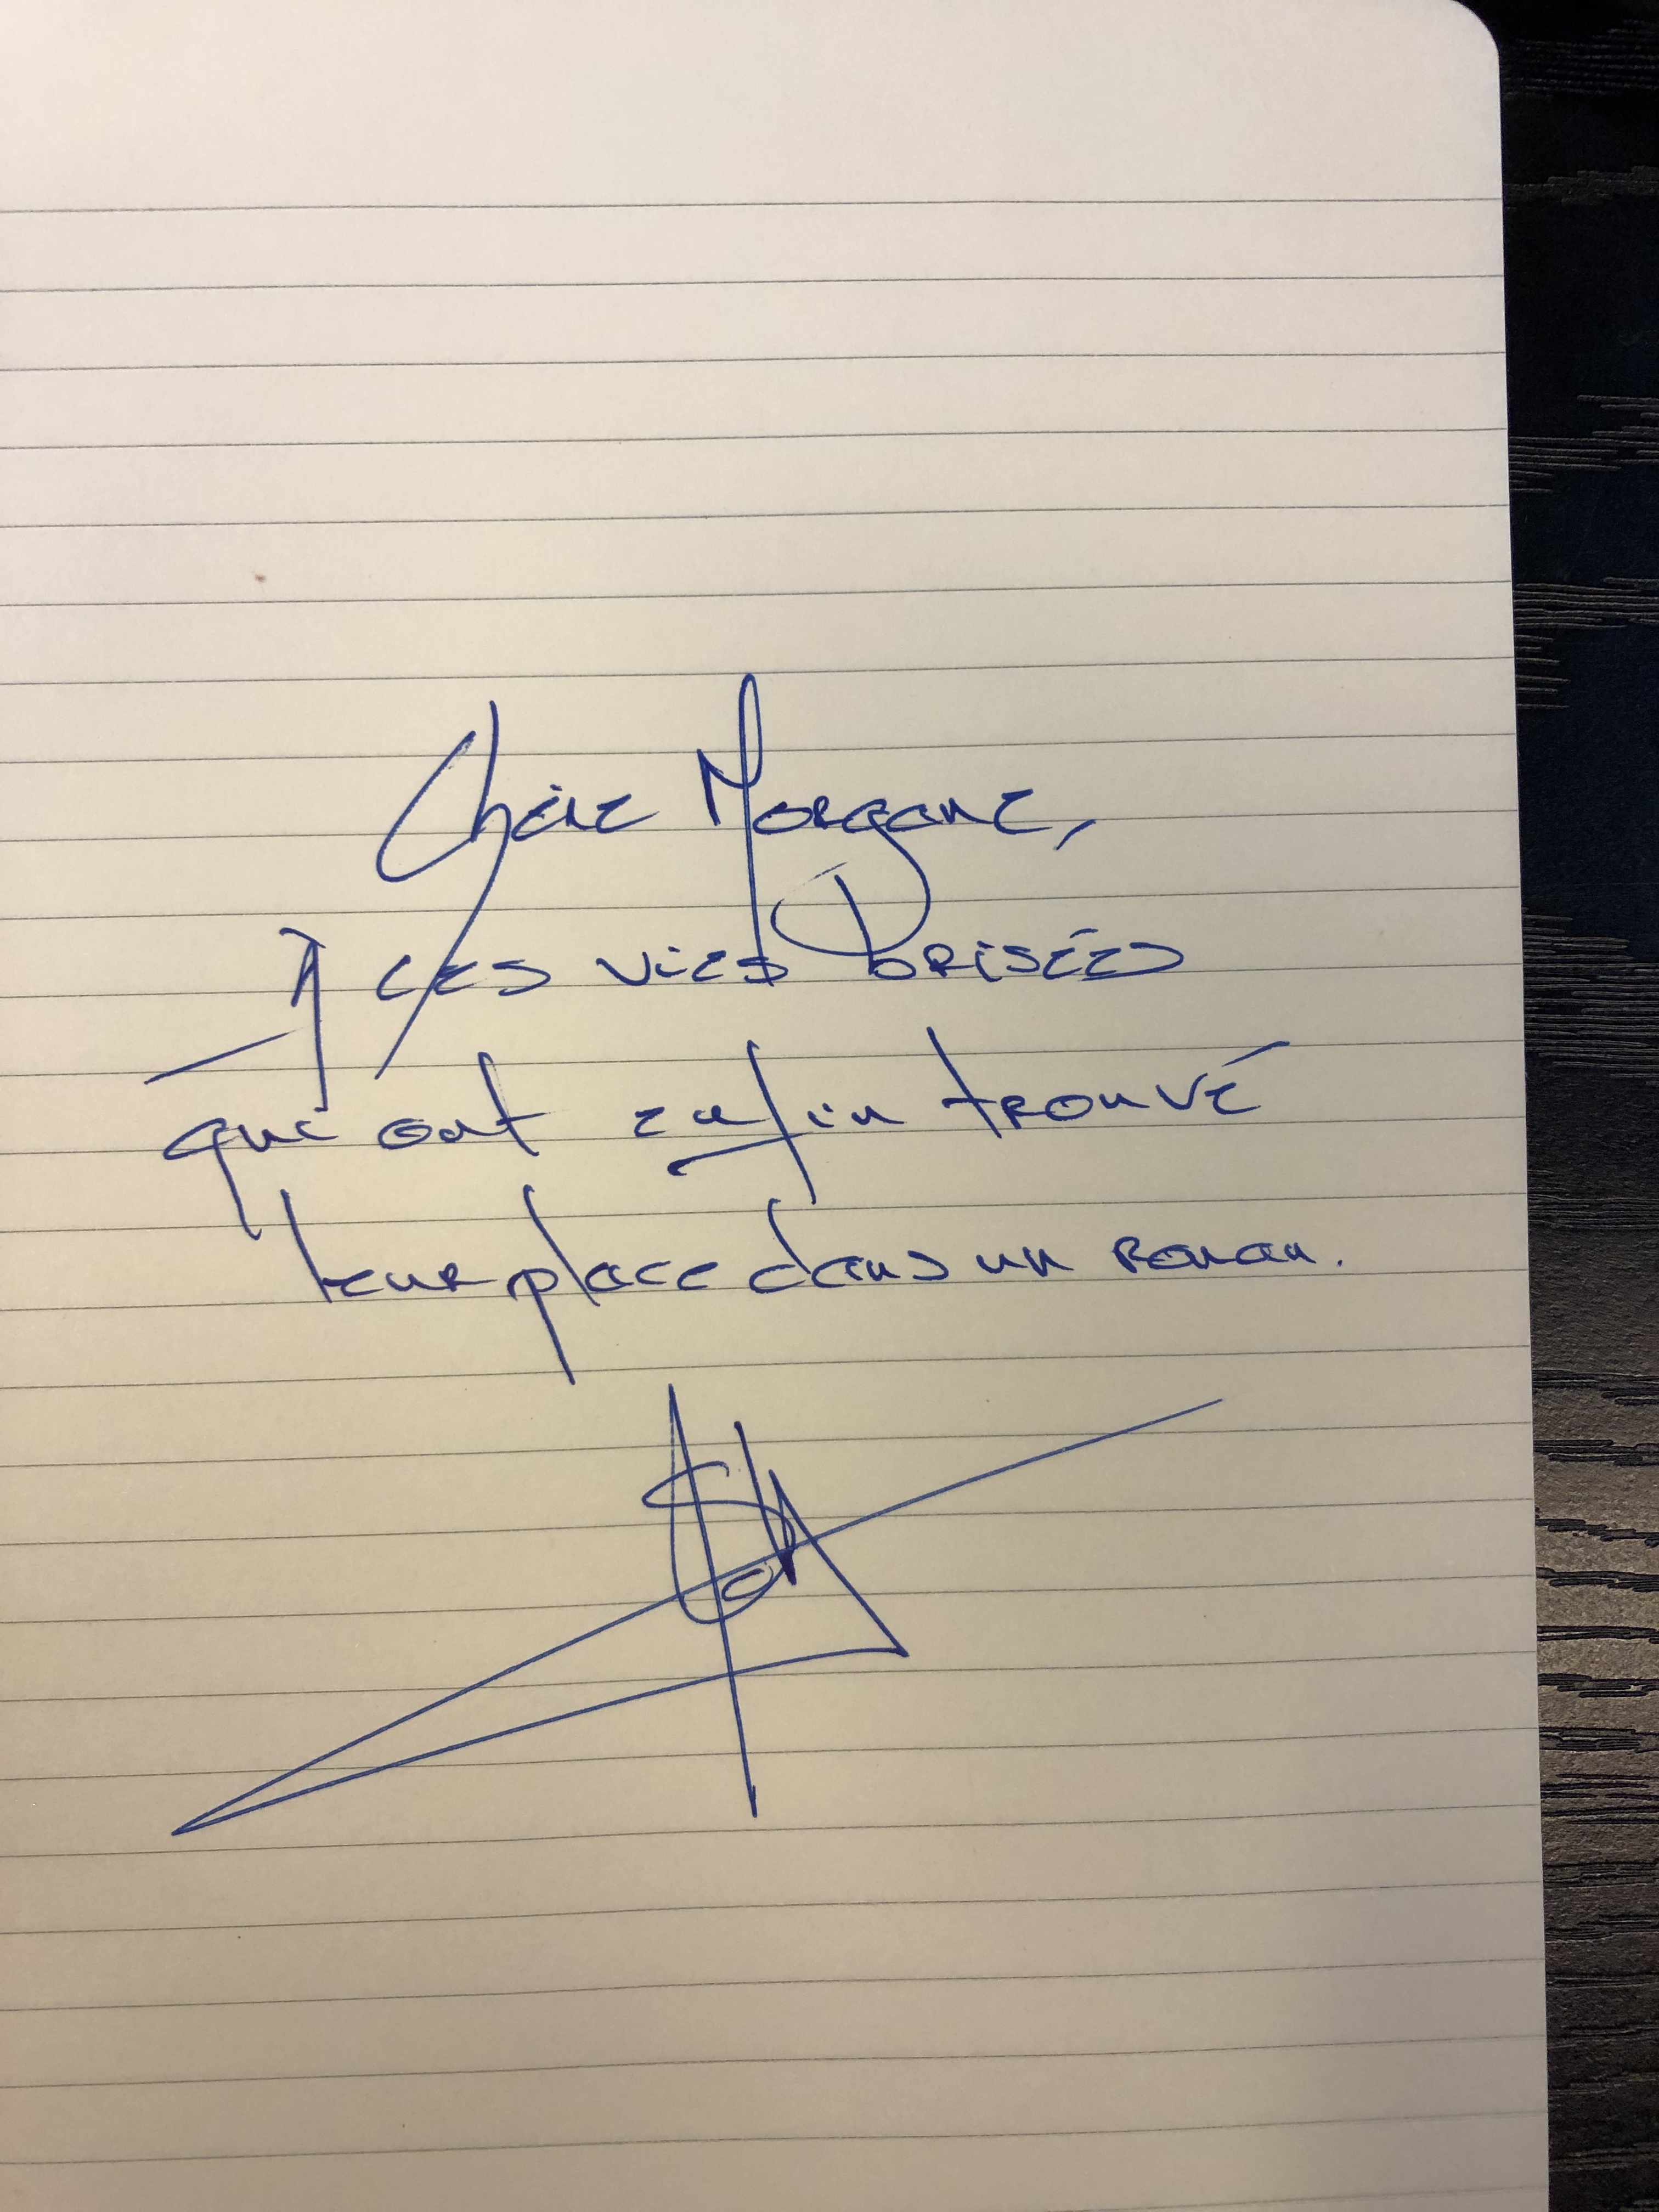 Chère Morgane,
À ces vies brisées
qui ont enfin trouvé
leur place dans un roman.